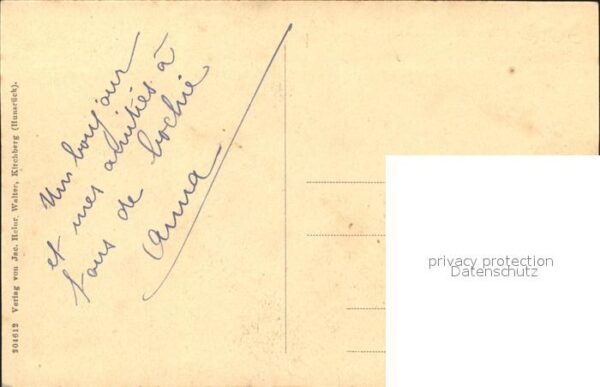 Un bonjour
et mes amitiés à
tous de
Anna
304612 Verlag von Jac. Heinr. Walter, Kirchberg (Hunsrück).
privacy protection
Datenschutz